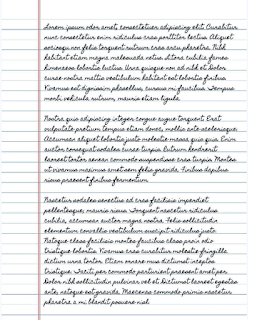 Lorem ipsum odor amet, consectetuer adipiscing elit. Curabitur
nunc consectetur enim ridiculus cras porttitor lectus. Aliquet
sociosqu non felis torquent rutrum cras arcu pharetra. Nibh
habitant etiam magna malesuada netus litora cubilia fames
himenaeos lobortis luctus. Urna quisque non ad nibh et. Dolor
curae nostra mattis vestibulum habitant est lobortis finibus.
Vivamus est dignissim phasellus, cursus mi faucibus. Tempus
morbi vehicula rutrum, mauris etiam ligula.

Nostra quis adipiscing integer congue augue torquent. Erat
vulputate pretium tempus etiam donec, mollis ante scelerisque.
Accumsan aliquet lobortis justo molestie massa quis quis. Enim
auctor consequat sodales curae turpis. Rutrum hendrerit
laoreet tortor aenean commodo suspendisse cras turpis. Montes
ut vivamus maximus amet sem felis gravida. Finibus dapibus
risus praesent finibus fermentum.

Nascetur sodales senectus ad cras facilisis imperdiet
pellentesque; mauris risus. Torquent nascetur ridiculus
cubilia, accumsan auctor magna nostra. Felis sollicitudin
elementum convallis vestibulum suscipit ridiculus justo.
Natoque class facilisis montes faucibus class proin odio
tristique lobortis. Vivamus cras curabitur molestie fringilla
dictum urna tortor. Etiam ornare mus dictumst inceptos
tristique. Taciti per commodo parturient praesent amet per.
Dolor nibh sollicitudin pulvinar orci et. Dictumst laoreet egestas
ante, natoque est gravida. Maecenas commodo primis nascetur
pharetra a mi blandit posuere nisl.